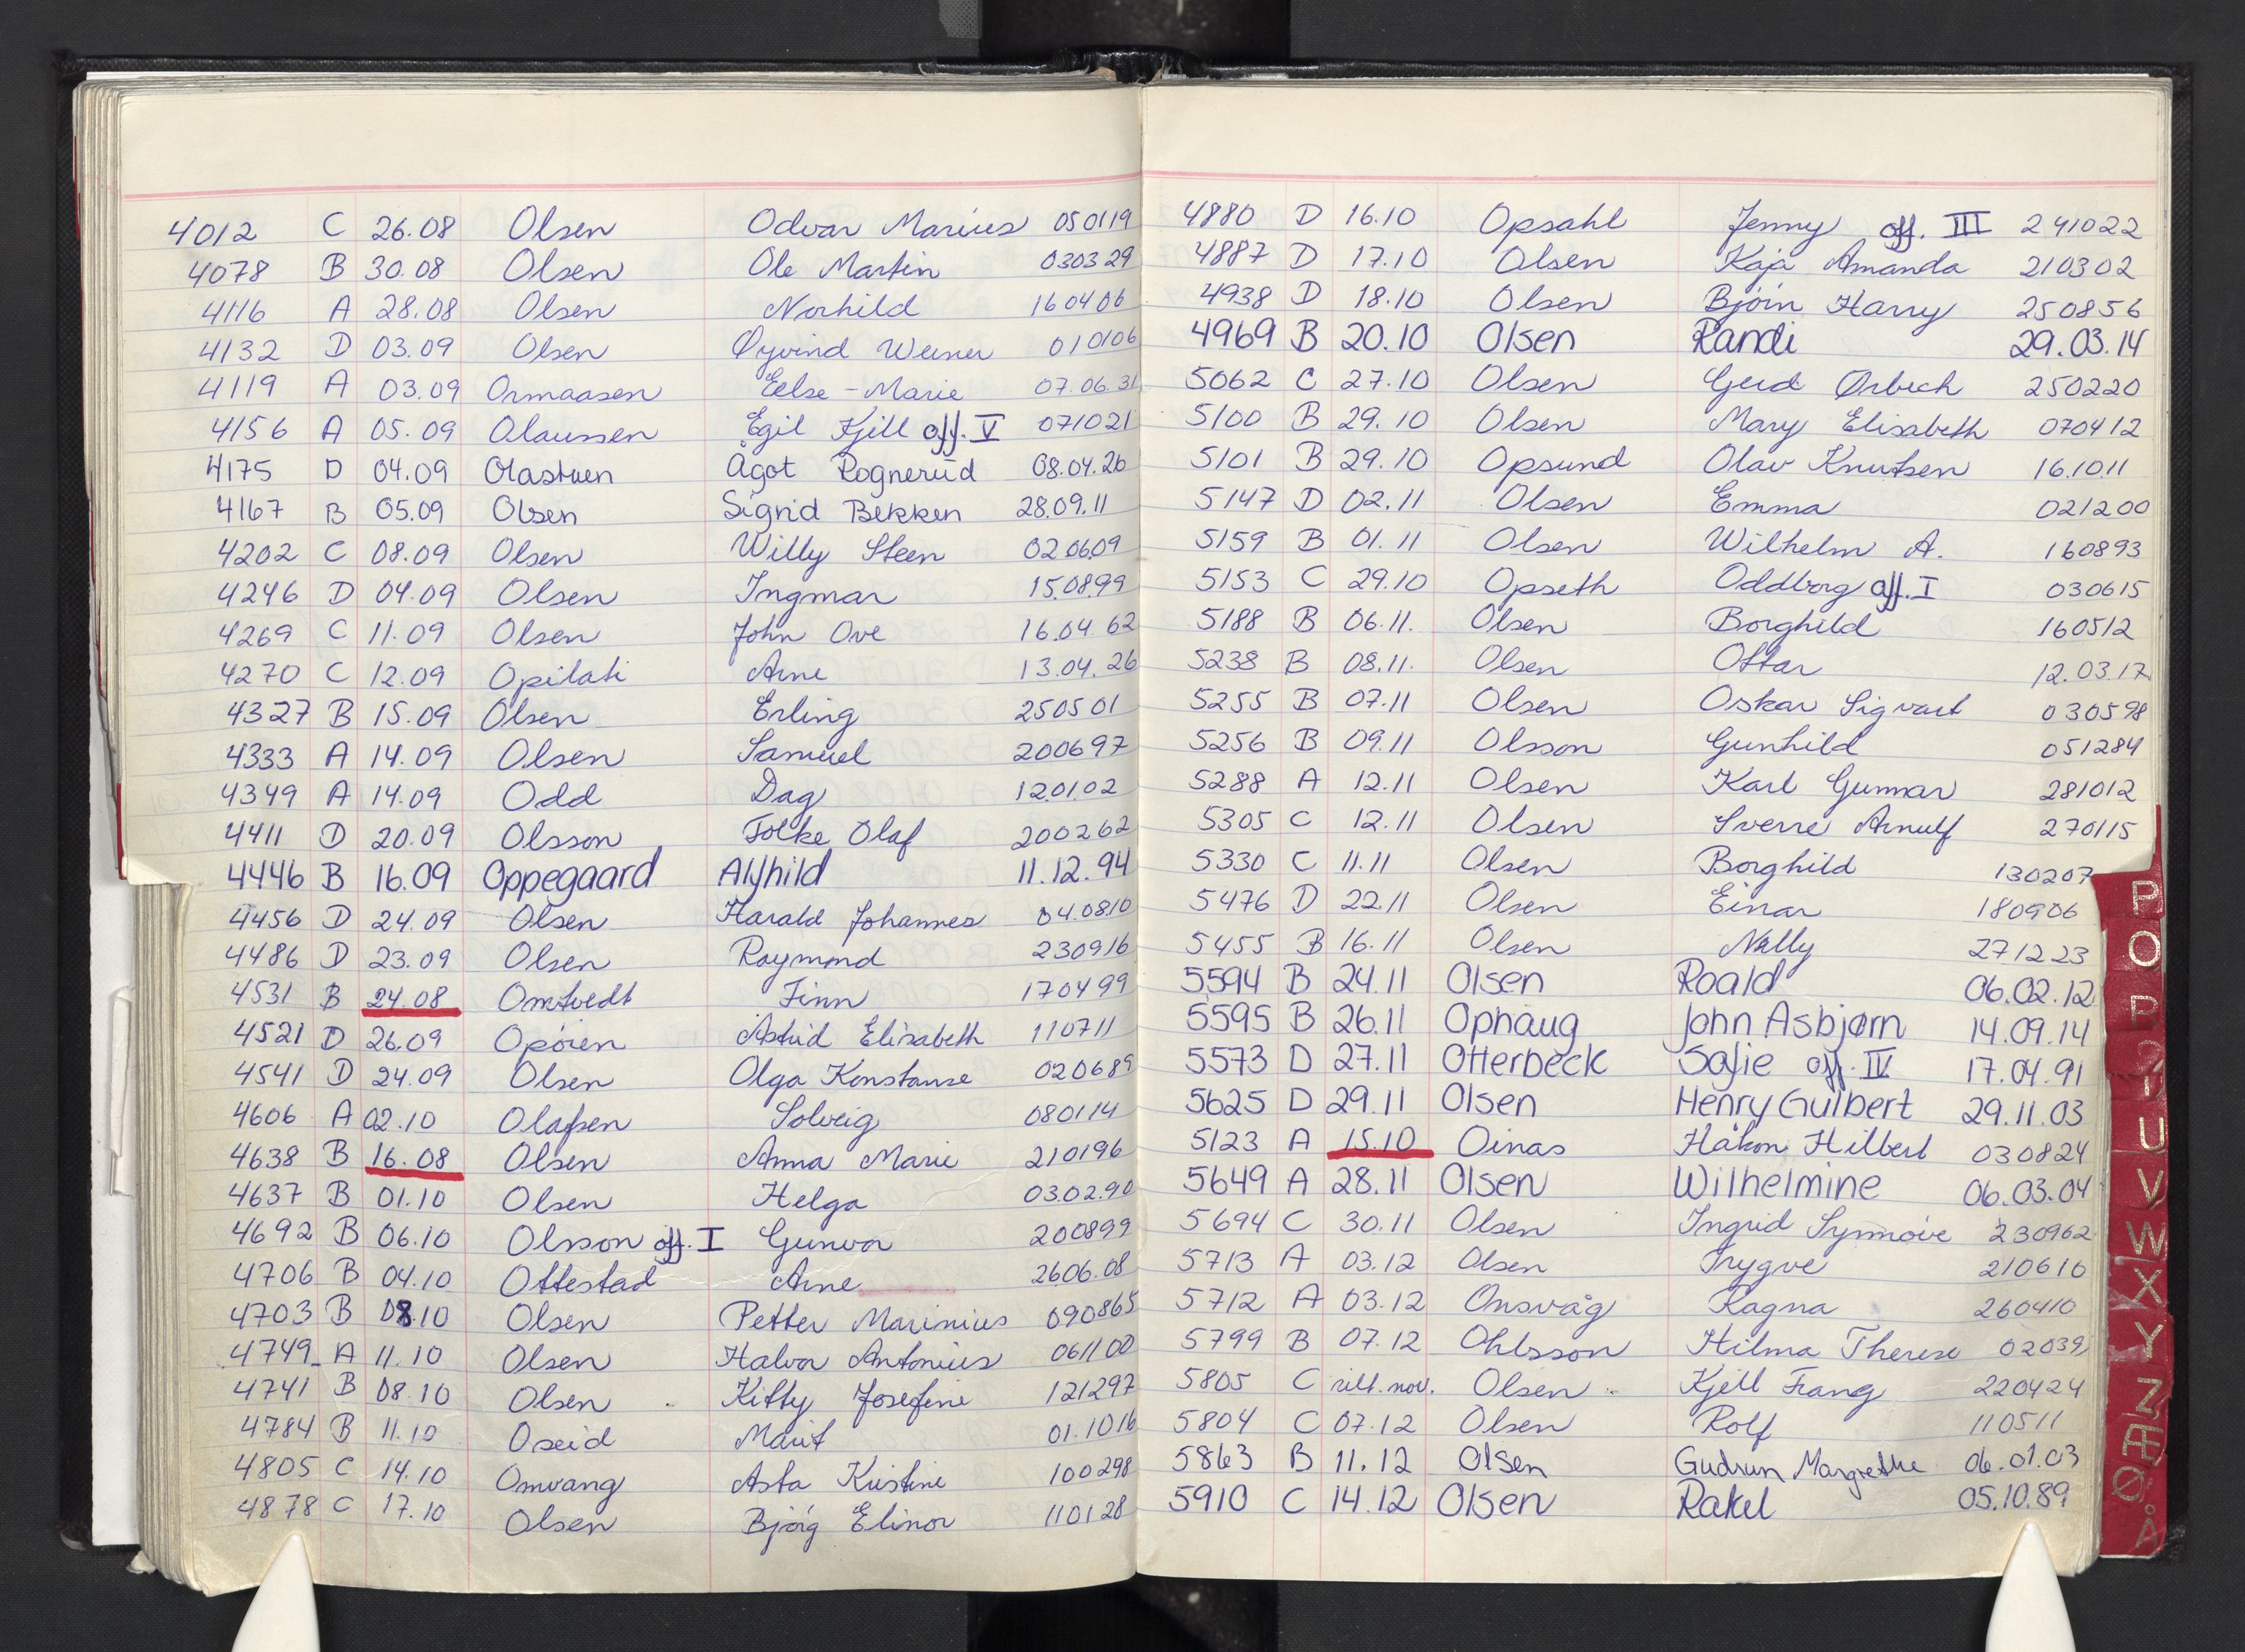 4012 C 26.08 Olsen Odvar Marius 050119
4078 B 30.08 Olsen Ole Martin 030329
4116 A 28.08 Olsen Norhild 160406
4132 D 03.09 Olsen Øyvind Werner 010106
4119 A 03.09 Ormaasen Eelse-Marie 07.06.31
4156 A 05.09 Olaussen Egil Kjell off. V 071021
4175 D 04.09 Olastuen Ågot Rognerud 08.04.26
4167 B 05.09 Olsen Sigrid Bekken 28.09.11
4202 C 08.09 Olsen Willy Steen 020609
4246 D 04.09 Olsen Ingmar 150899
4269 C 11.09 Olsen John Ove 16.04.62
4270 C 12.09 Opilati Arne 13.04.26
4327 B 15.09 Olsen Erling 250501
4333 A 14.09 Olsen Samuel 200697
4349 A 14.09 Odd Dag 120102
4411 D 20.09 Olsson Folke Olaf 200262
4446 B 16.09 Oppegaard Alfhild 11.12.94
4456 D 24.09 Olsen Harald Johannes 040810
4486 D 23.09 Olsen Raymond 230916
4531 B 24.08 Omtvedt Finn 170499
4521 D 26.09 Opøien Astrid Elisabeth 110711
4541 D 24.09 Olsen Olga Konstanse 020689
4606 A 02.10 Olafsen Solveig 080114
4638 B 16.08 Olsen Anna Marie 210196
4637 B 01.10 Olsen Helga 03.02.90
4692 B 06.10 Olsson off. I Gunvor 200899
4706 B 04.10 Ottestad Arne 26.06.08
4703 B 08.10 Olsen Petter Marinius 090865
4749 A 11.10 Olsen Halvor Antonius 061100
4741 B 08.10 Olsen Kitty Josefine 121297
4784 B 11.10 Oseid Marit 01.1016
4805 C 14.10 Omvang Asta Kristine 100298
4878 C 17.10 Olsen Bjørg Elinor 110128
4880 D 16.10 Opsahl Jenny off. III 241022
4887 D 17.10 Olsen Kaja Amanda 210302
4938 D 18.10 Olsen Bjørn Harry 250856
4969 B 20.10 Olsen Randi 29.03.14
5062 C 27.10 Olsen Gerd Ørbech 250220
5100 B 29.10 Olsen Mary Elisabeth 070412
5101 B 29.10 Opsund Olav Knutsen 16.10.11
5147 D 02.11 Olsen Emma 021200
5159 B 01.11 Olsen Wilhelm A. 160893
5153 C 29.10 Opseth Oddborg off. I 030615
5188 B 06.11. Olsen Borghild 160512
5238 B 08.11. Olsen Ottar 12.03.17
5255 B 07.11 Olsen Oskar Sigvart 030598
5256 B 09.11 Olsson Gunhild 051284
5288 A 12.11 Olsen Karl Gunnar 281012
5305 C 12.11 Olsen Sverre Arnulf 270115
5330 C 11.11 Olsen Borghild 130207
5476 D 22.11 Olsen Einar 180906
5455 B 16.11 Olsen Nelly 271223
5594 B 24.11 Olsen Roald 06.02.12
5595 B 26.11 Ophaug John Asbjørn 14.09.14
5573 D 27.11 Otterbeck Sofie off. IV 17.04.91
5625 D 29.11 Olsen Henry Gulbert 29.11.03
5123 A 15.10 Oinas Håkon Hilbert 030824
5649 A 28.11 Olsen Wilhelmine 06.03.04
5694 C 30.11 Olsen Ingrid Synnøve 230962
5713 A 03.12 Olsen Trygve 210610
5712 A 03.12 Onsvåg Ragna 260410
5799 B 07.12 Ohlsson Hilma Therese 02039
5805 C nov. Olsen Kjell Frang 220424
5804 C 07.12 Olsen Rolf 110511
5863 B 11.12 Olsen Gudrun Margrethe 06.01.03
5910 C 14.12 Olsen Rakel 05.10.89
P
O
P
U
V
W
X
Y
Z
Æ
Ø
Å